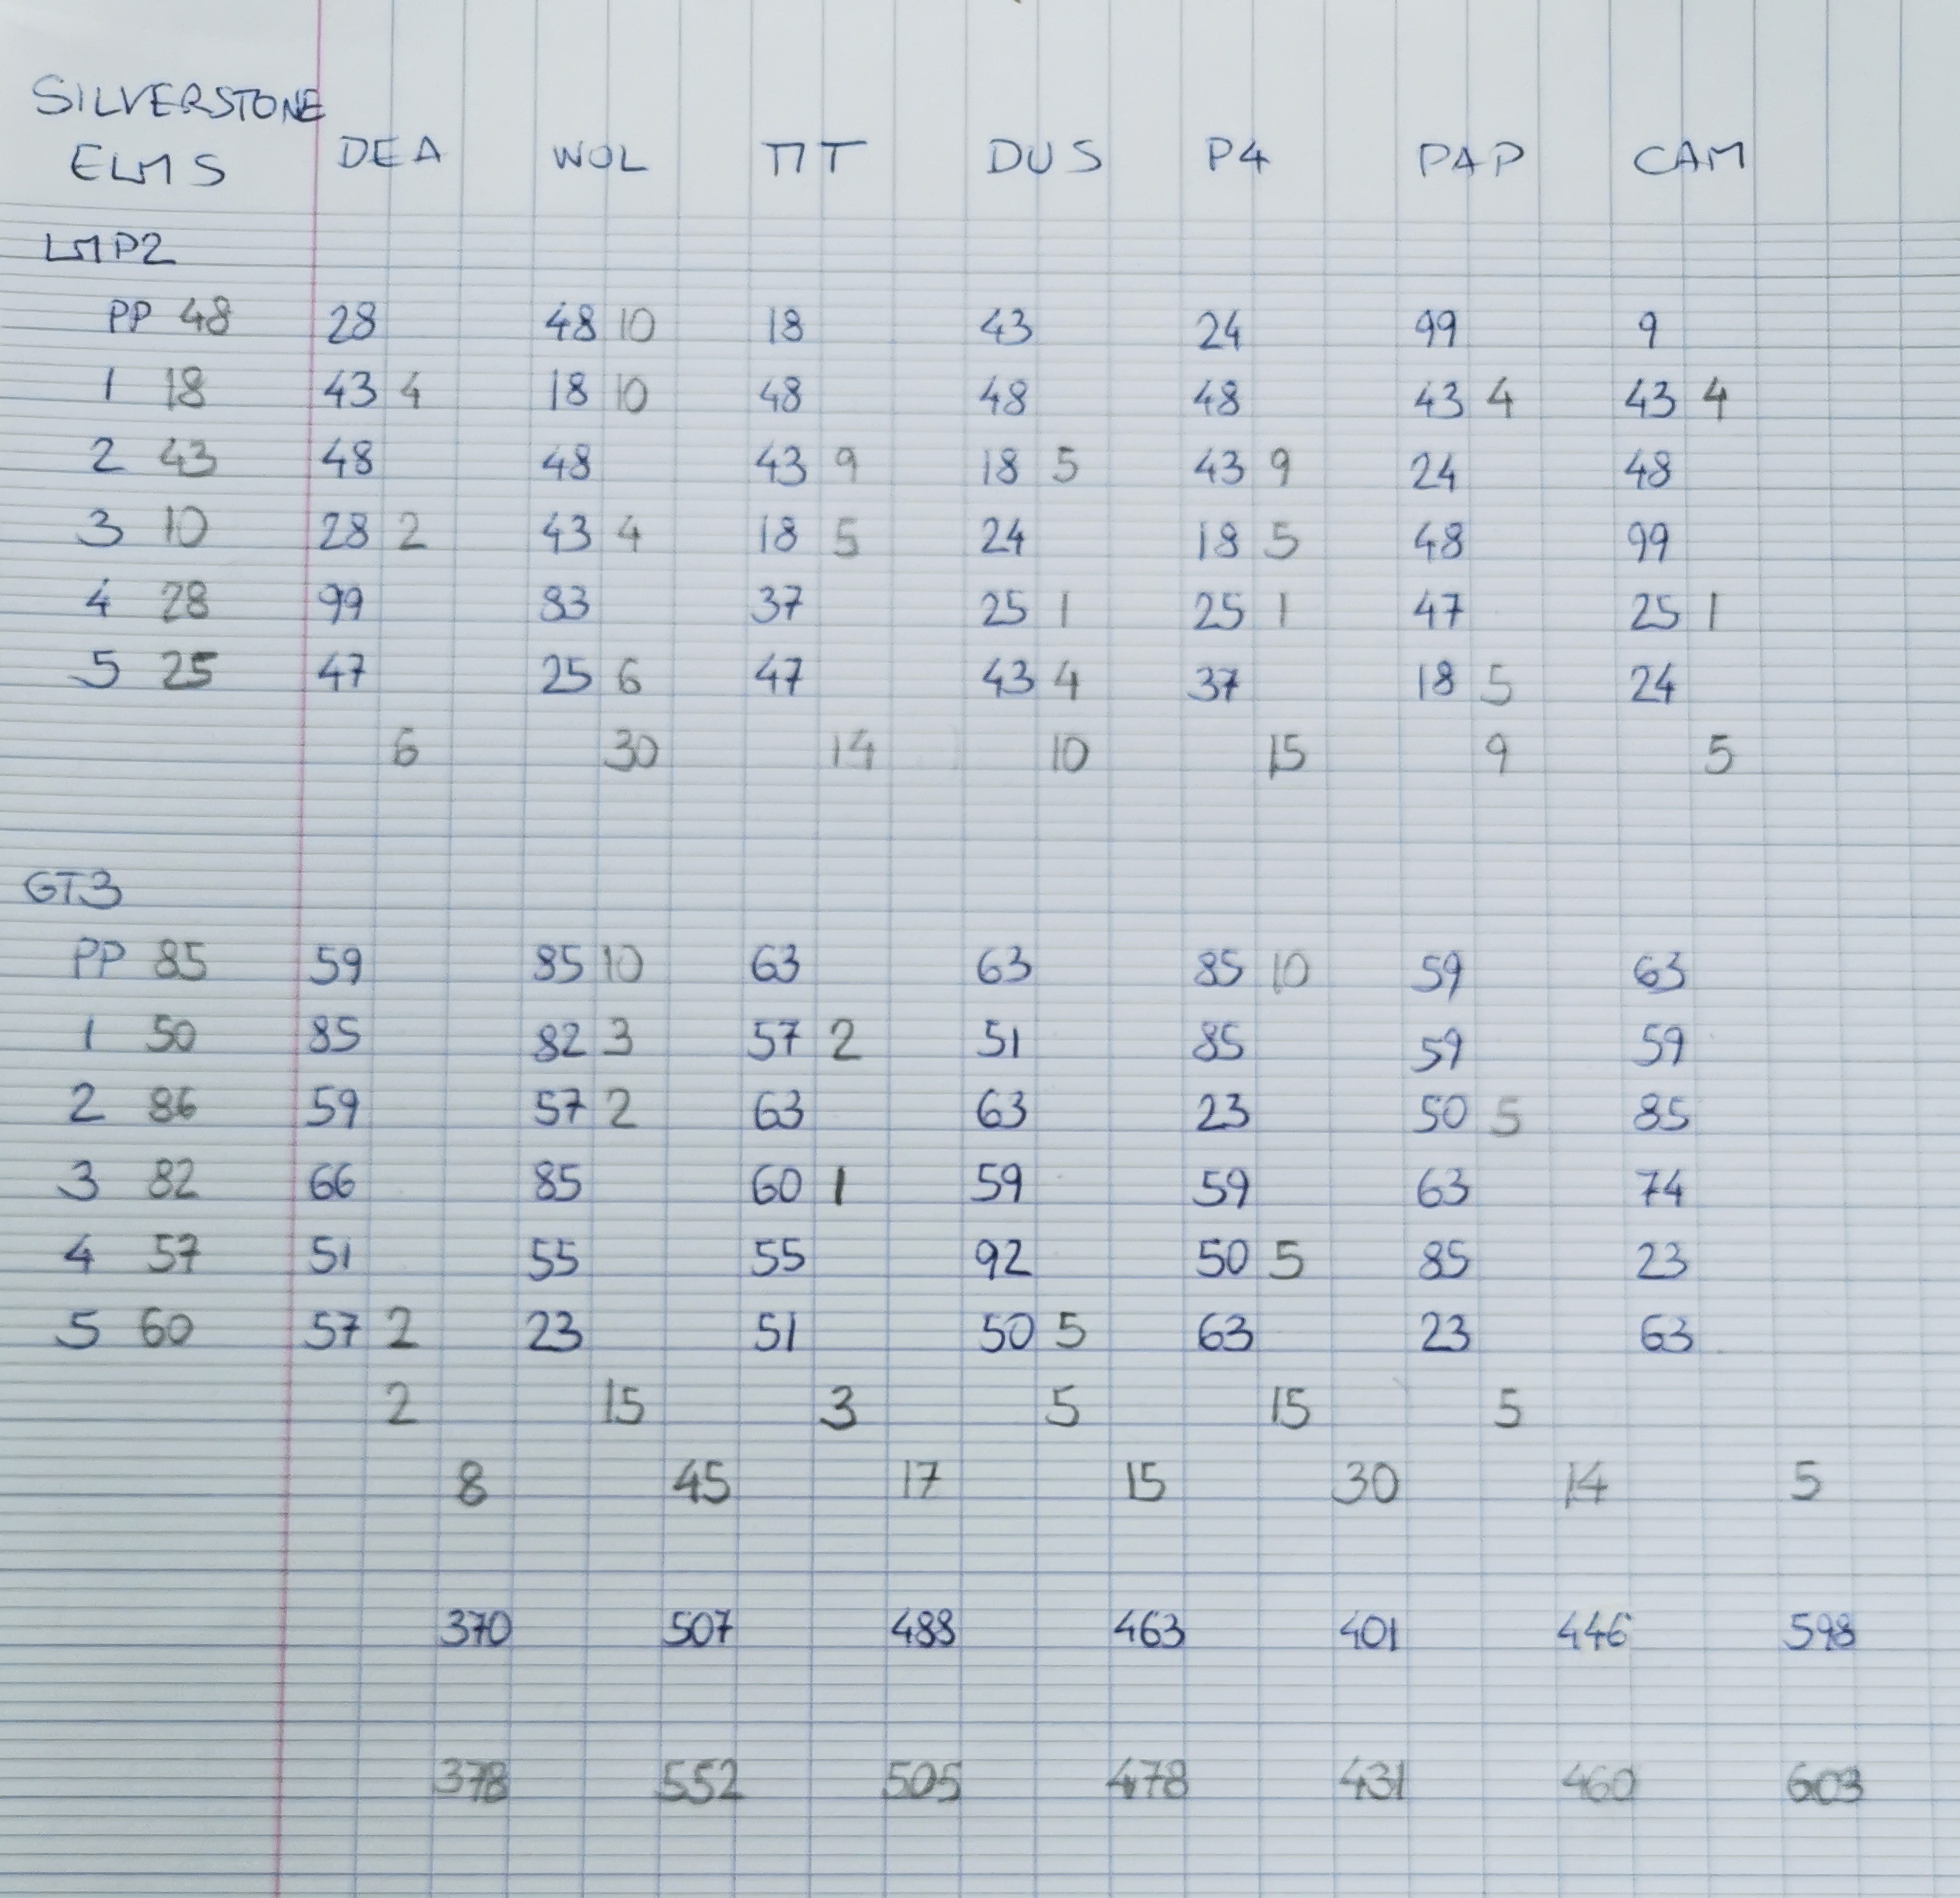 SILVERSTONE
ELMS DEA WOL TIT DUS P4 PAP CAM
LMP2
PP 48 28 48 10 18 43 24 99 9
1 18 43 4 18 10 48 48 48 43 4 43 4
2 43 48 48 43 9 18 5 43 9 24 48
3 10 28 2 43 4 18 5 24 18 5 48 99
4 28 99 83 37 25 1 25 1 47 25 1
5 25 47 25 6 47 43 4 37 18 5 24
6 30 14 10 15 9 5
GT3
PP 85 59 85 10 63 63 85 10 59 63
1 50 85 82 3 57 2 51 85 59 59
2 86 59 57 2 63 63 23 50 5 85
3 82 66 85 60 1 59 59 63 74
4 57 51 55 55 92 50 5 85 23
5 60 57 2 23 51 50 5 63 23 63
2 15 3 5 15 5
8 45 17 15 30 14 5
370 507 488 463 401 446 598
378 552 505 478 431 460 603